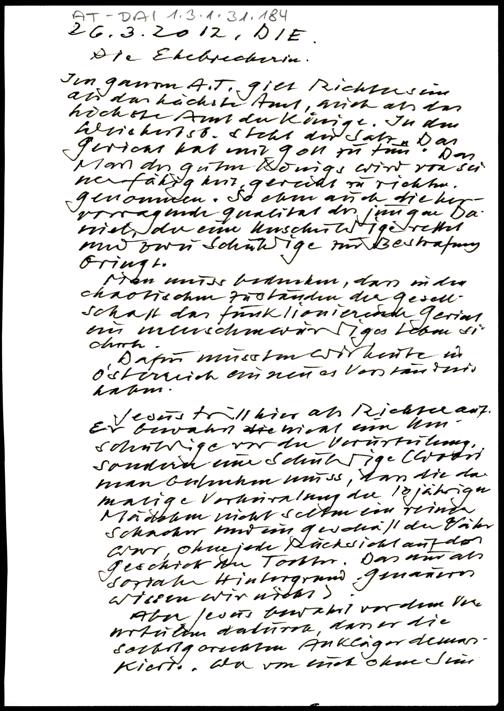 AT-DAI 1.3.1.31.184
26.3.2012, DIE.
Die Ehebrecherin.
Im ganzen A.T. gilt Richter sein
als das höchste Amt, auch als das
höchste Amt der Könige. In den
steht der Satz „Das
Gericht hat mit Gott zu tun". Das
Mass des guten Königs wird von sei
ner Fähigkeit, gerecht zu richten
genommen. So eben auch die her-
vorragende Qualität des jungen Da-
niel, der eine Unschuldige rettet
und zwei Schuldige zur Bestrafung
bringt.
Man muss bedenken, dass in den
chaotischen Zuständen der Gesell-
schaft das funktionierende Gericht
ein menschenwürdiges Leben si
chert.
Dafür müssten wir heute in
Österreich ein neues Verständnis
haben.
Jesus tritt hier als Richter auf.
Er bewahrt nicht eine Un-
schuldige vor der Verurteilung,
sondern eine Schuldige (wobei
man bedenken muss, dass die da
malige Verheiratung der 12jährigen
Mädchen nicht selten ein reiner
Schacher und ein Geschäft der Väter
war, ohne jede Rücksicht auf das
Geschick der Tochter. Das nur als
sozialer Hintergrund. Genaueres
wissen wir nicht)
Aber Jesus bewahrt vor dem Ver
urteilen dadurch, dass er die
selbstgerechten Ankläger demas-
kiert. Wer von euch ohne Sün